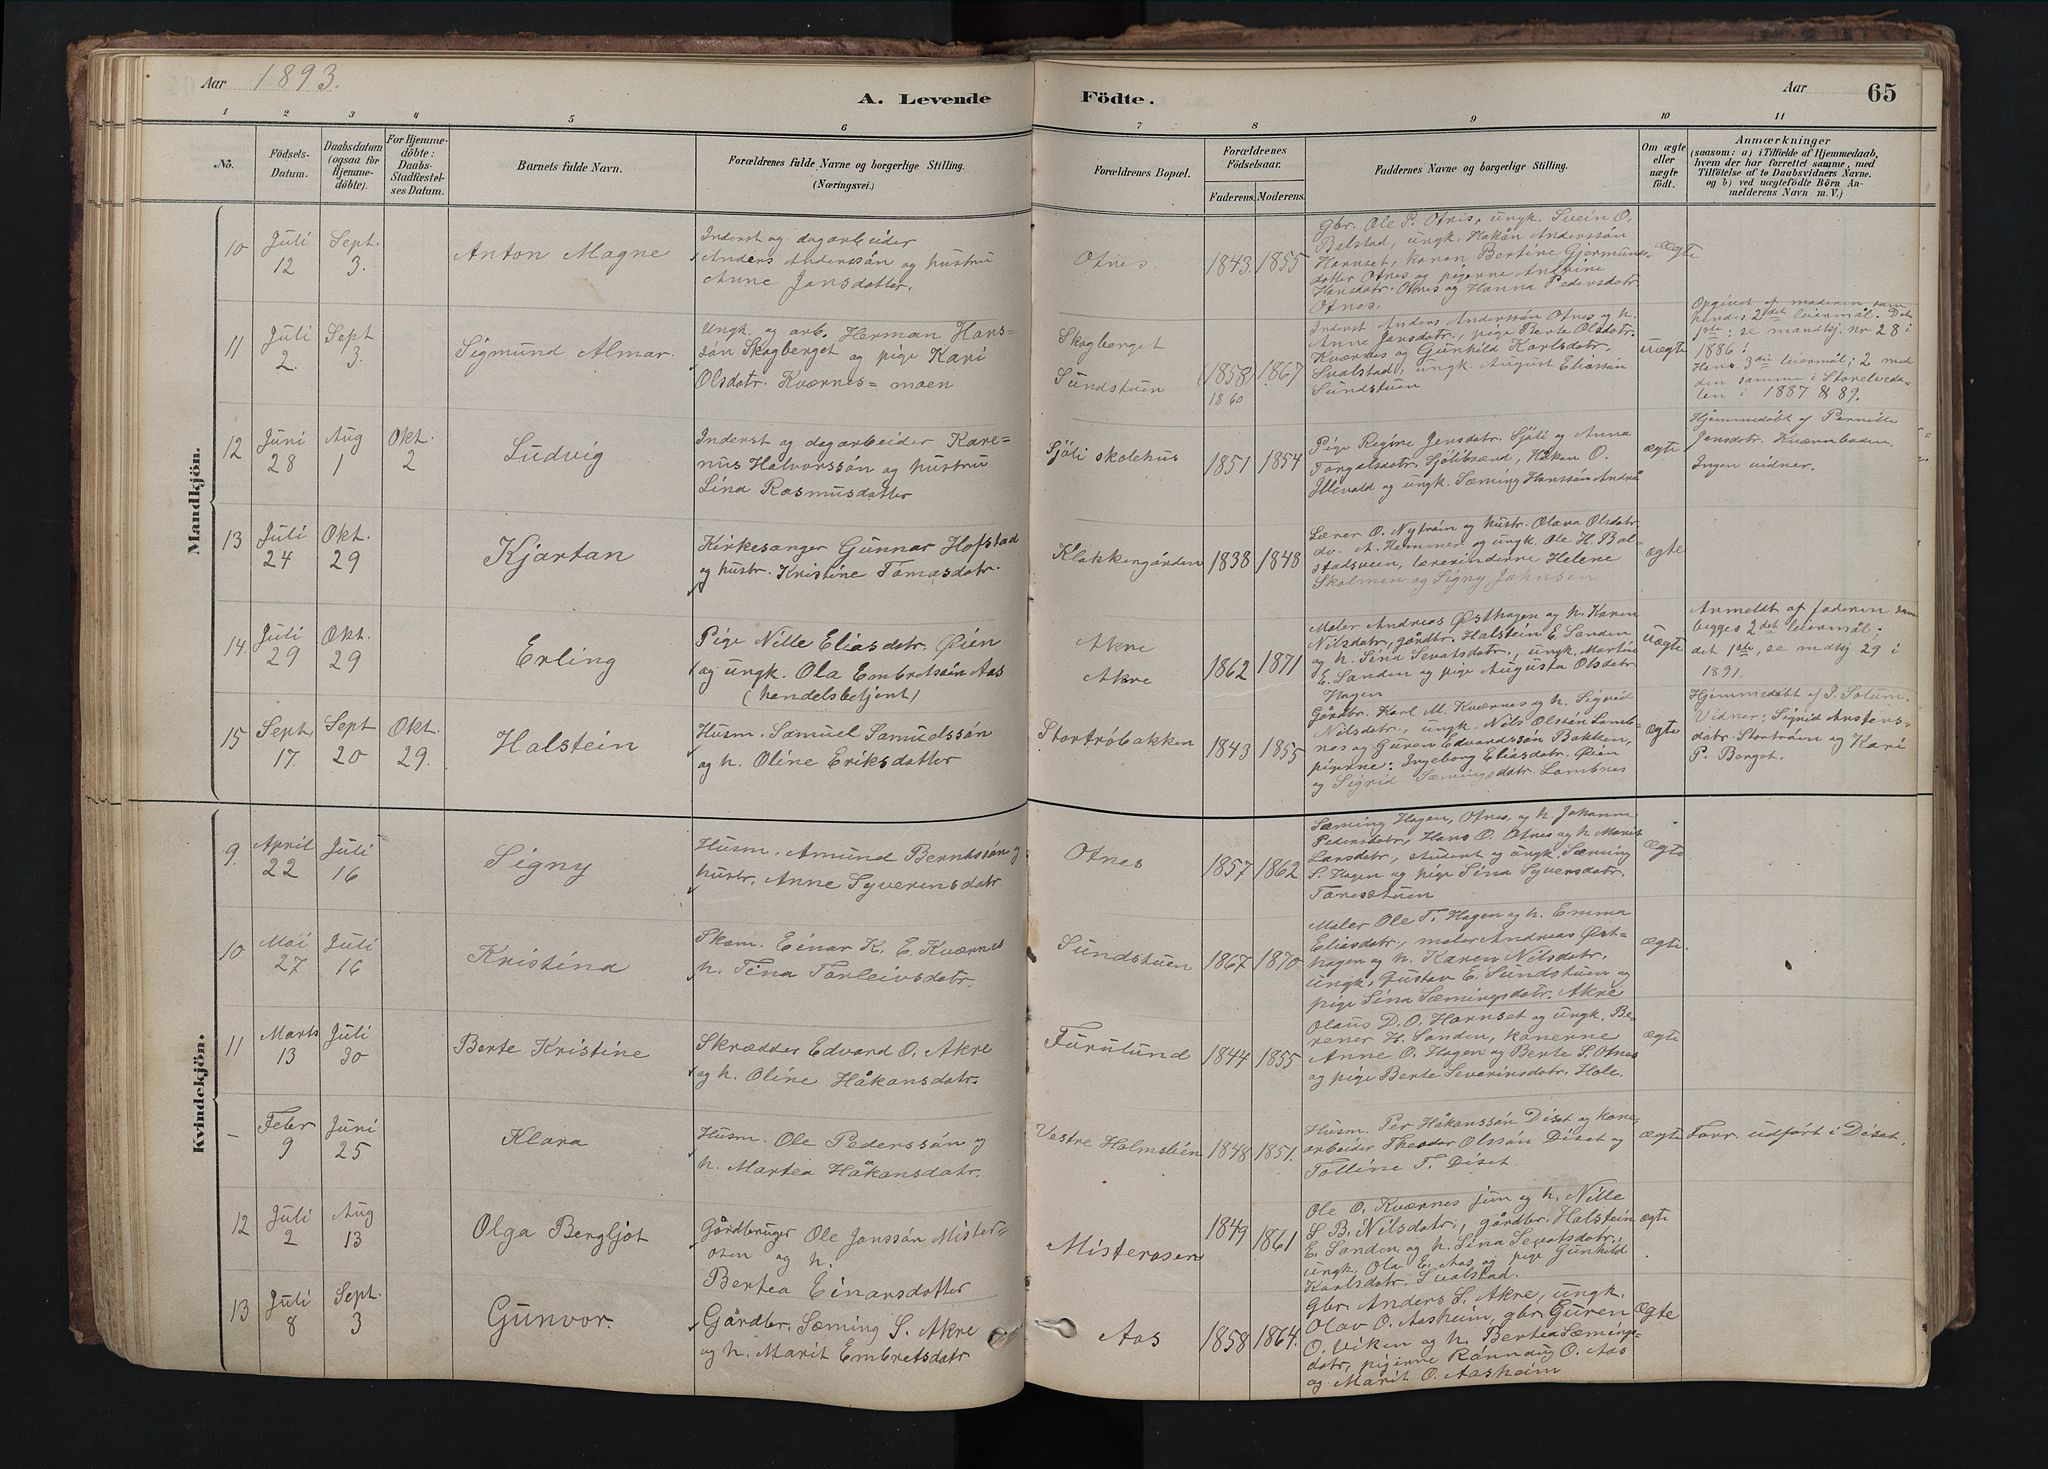 Aar 1893.
A. Levende Födte.
Aar 65
1 2 3 4 5 6 7 8 9 10 11
No.
Födsels-
Datum.
Daabsdatum
(ogsaa for
Hjemme-
döbte).
For Hjemme-
döbte:
Daabs-
Stadfæstel-
ses Datum.
Barnets fulde Navn.
Forældrenes fulde Navne og borgerlige Stilling.
(Næringsvei.)
Forældrenes Bopæl.
Forældrenes
Födselsaar.
Faderens. Moderens.
Faddernes Navne og borgerlige Stilling.
Om ægte
eller
uægte
födt.
Anmærkninger
(saasom: a) i Tilfælde af Hjemmedaab,
hvem der har forrettet samme, med
Tilföielse af to Daabsvidners Navne.
og b) ved uægtefödte Börn An-
melderens Navn m. V.)
Mandkjön.
10
Juli
12
Sept.
3.
Anton Magne
Inderst og dagarbeider
Anders Anderssön og hustru
Anne Jansdatter.
Otnes.
1843. 1855
Gbr. Ole P. Otnes, ungk. Svein O.
Balstad, ungk. Hakån Anderssön
Harnset, konen Bertine Gjörmunds-
datter Otnes og pigerne Antoine
Hansdatr. Otnes og Hanna Pedersdatr.
Otnes.
ægte
11
Juli
2.
Sept
3.
Sigmund Almar.
Ungk. og arb. Herman Hans-
sön Skogberget og pige Kari
Olsdatr. Kværnes=moen
Skogberget
Sundstuen
1858 1867
1860
Inderst Anders Anderssön Otnes og h.
Anne Jansdatr., pige Berte Olsdatr.
Kværnes og Gunhild Karlsdatr.
Svalstad, ungk. August Eliassön
Sundstuen
uægte
Opgivet af moderen, som
hendes 2det leiermål. Det
1ste: se mandkj. nr. 28 i
1886!
Hans 3die leiermål; 2 med
den samme i Storelveda-
len i 1887 & 89.
12
Juni
28
Aug
1
Okt.
2
Ludvig
Inderst og dagarbeider Kare-
nus Halvorssön og hustru
Lina Rasmusdatter
Sjöli skolehus
1851 1854
Pige Regine Jensdatr. Sjöli og Anna
Torgalsdatr. Sjölibrænd, Håken O.
Illevold og ungk. Sæming Hanssön Andrå
ægte
Hjemmedöbt af Pernille
Jensdatr. Kværnboden.
Ingen vidner.
13
Juli
24
Okt.
29
Kjartan
Kirkesanger Gunnar Hofstad
og hustr. Kristine Tomasdatr.
Klokkergården
1838 1848
Lærer O. Nytröin og hustr. Olava Olsdatr.
dv. A. Hammer og ungk. Ole H. Bal-
stadsveen, lærerinderne Helene
Skolmen og Signy Johnsen
ægte
14.
Juli
29
Okt.
29
Erling
Pige Nille Eliasdatr. Öien
og ungk. Ola Embretssön Aas
(handelsbetjent)
Akre
Akre
1862 1871
Maler Andreas Östhagen og h. Karen
Nilsdatr., gårdbr. Halstein E. Sanden
og h. Sina Sevatsdatr., ungk. Martin
E. Sanden og pige Augusta Olsdatr.
Hagen
uægte
Anmeldt af faderen som
begges 2det leiermål;
det 1ste, se mdkj 29 i
1891.
15
Sept.
17.
Sept
20
Okt.
29.
Halstein
Husm. Samuel Samuelssön
og h. Oline Eriksdatter
Stortröbakken
1843 1855
Gårdbr. Karl M. Kværnes og h. Sigrid
Nilsdatr., ungk. Nils Olssön Lomb-
nes og Guren Edvardssön Bakken,
pigerne: Ingeborg Eliasdatr. Öien
og Sigrid Sæmingsdatr. Lombnes
ægte
Hjemmedöbt af P. Solum.
Vidner: Sigrid Anstens-
datr. Stortröin og Kari
P. Berget.
Kvindekjön.
9.
April
22
Juli
16
Signy
Husm. Amund Berntssön og
hustr. Anne Syverensdatr.
Otnes
1857 1862
Sæming Hagen, Otnes, og h. Johanne
Pedersdatr., Hans O. Otnes og h. Marit
Larsdatr., student og ungk. Sæming
S. Hagen og pige Sina Syversdatr.
Toresstuen
ægte
10
Mai
27
Juli
16
Kristina
Skom. Einar K. E. Kværnes
h. Tina Torleivsdatr.
Sundstuen
1867 1870
Maler Ole T. Hagen og h. Emma
Eliasdatr., maler Andreas Öst-
hagen og h. Karen Nilsdatr.
ungk. Gustav E. Sundstuen og
pige Sina Sæmingsdatr. Akre
ægte.
11
Marts
13
Juli
30
Berte Kristine
Skrædder Edvard O. Akre
og h. Oline Håkansdatr.
Furulund
1844 1855
Olaus D. O. Harnset og ungk. Be-
rener H. Sanden, konerne
Anne O. Hagen og Berte S. Otnes
og pige Berte Severinsdatr. Hole.
ægte
–
Feber
9
Juni
25
Klara
Husm. Ole Pederssön og
h. Martea Håkansdatr.
Vestre Holmsløien
1848 1851.
Husm. Per Håkanssön Diset og kone,
arbeider Theodor Olssön Diset og
Tolline T. Diset
ægte
Forr. udført i Diset.
12
Juli
2
Aug
13
Olga Bergljot
Gårdbruger Ole Janssön Mister-
osen og h.
Bertea Einarsdatter
Misterosen
1849 1861
Ole O. Kværnes jun og h. Nille
S. B. Nilsdatr., gårdbr. Halstein
E. Sanden og h. Sina Sevatsdatr.,
ungk. Ola E. Aas og pige Gunhild
Karlsdatr. Svalstad.
ægte
13
Juli
8
Sept.
3
Gunvor.
Gårdbr. Sæming S. Akre
og h. Marit Embretsdatr
Aas
1858 1864.
Gbr. Anders S. Akre, ungk.
Olav O. Aasheim, gbr. Guren
O. Viken og h. Bertea Sæmings-
datr, pigerne Rönnaug O. Aas
og Marit O. Aasheim
ægte